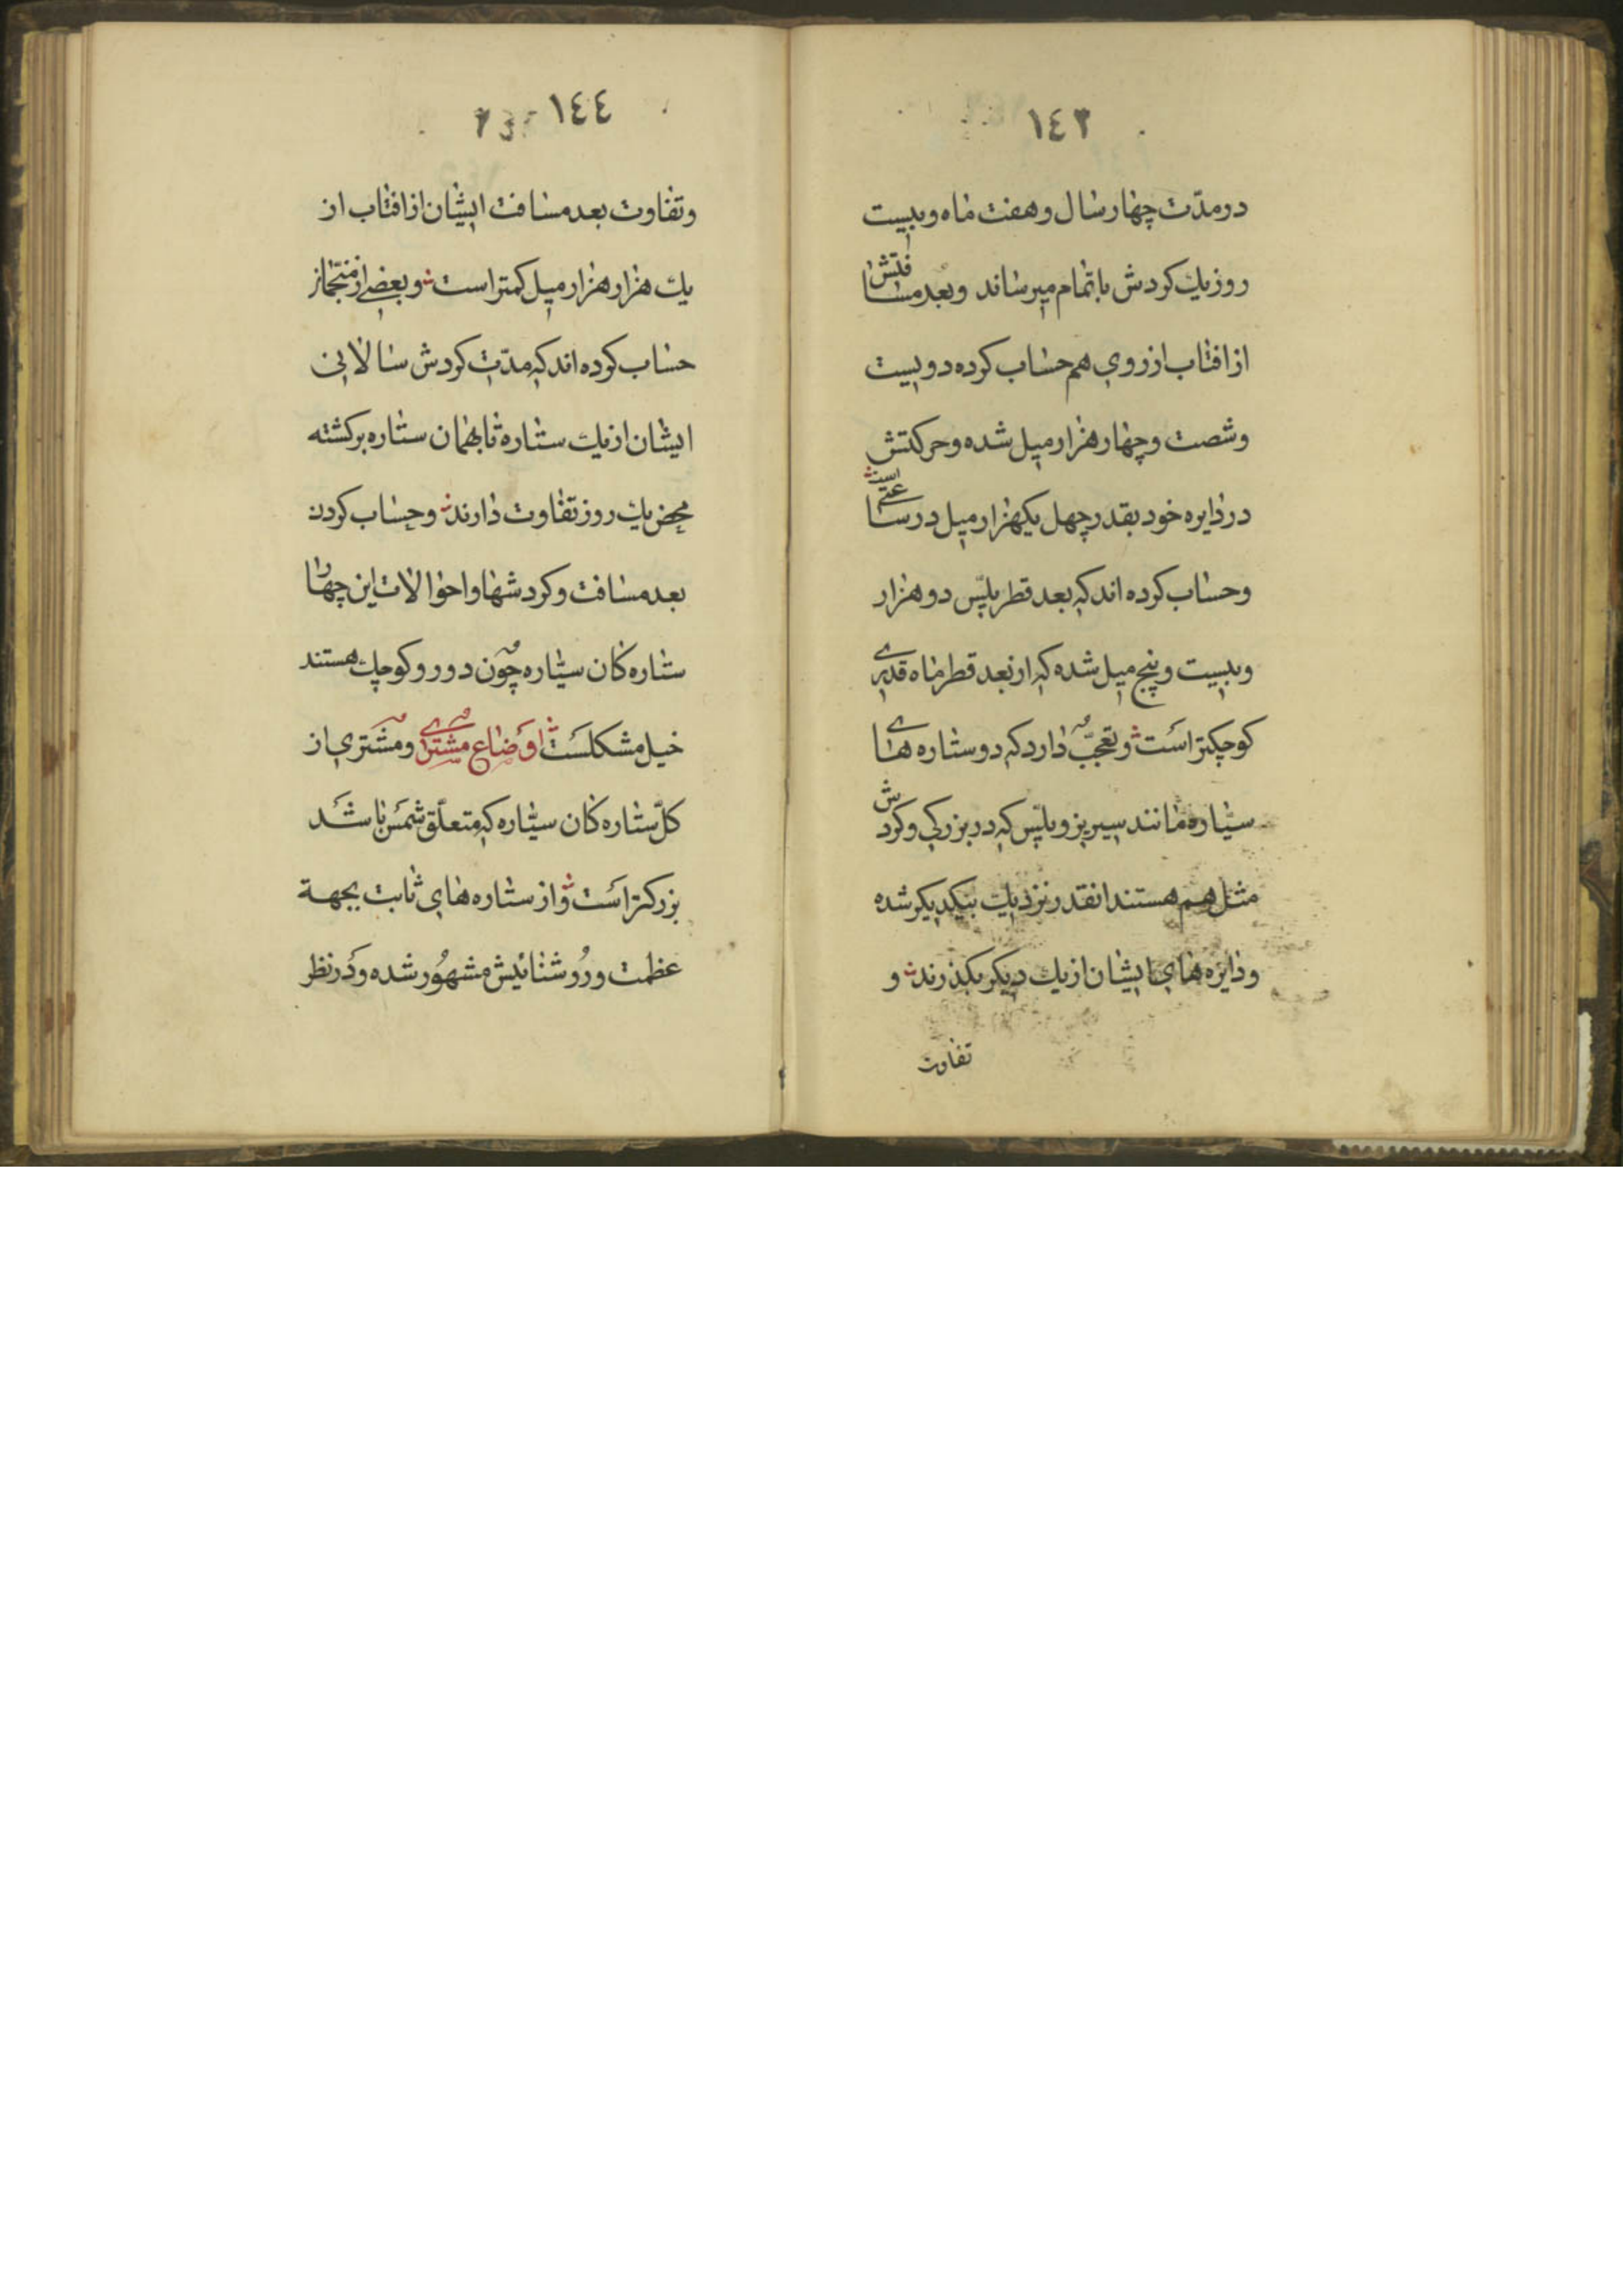 ١٤٣
در مدّت چهار سال و هفت ماه و بیست
روز یك کردش باتمام میرساند وبعد مسافتش
از افتاب از روی هم حساب کرده دویست
وشصت وچهار هزار میل شده وحرکتش
در دایره خود بقدر چهل یکهزار میل در ساعتی است
وحساب کرده اند که بعد قطر پلّس دو هزار
وبیست وپنج میل شده که از بعد قطر ماه قدری
کوچکتر است و تعجّب دارد که دو ستاره های
سیّاره مانند سیریز و پلّس که در بزرکی وکردش
مثل هم هستند انقدر نزدیك بیکدیکر شده
ودایره های ایشان از یك دیکر بکذرند و
تفاوت
١٤٤
وتفاوت بعد مسافت ایشان از افتاب از
یك هزار هزار میل کمتر است و بعضی از منجّمان
حساب کرده اند که مدّت کردش سالانی
ایشان از یك ستاره تا بهمان ستاره برکشته
محض یك روز تفاوت دارند وحساب کردن
بعد مسافت وکردشها واحوالات این چهار
ستاره کان سیّاره چون دور وکوچك هستند
خیل مشکلست اوضاع مشتری ومشتری از
کلّ ستاره کان سیّاره که متعلّق شمس باشد
بزرکتر است واز ستاره های ثابت بجهة
عظمت وروشنائیش مشهور شده ودر نظر